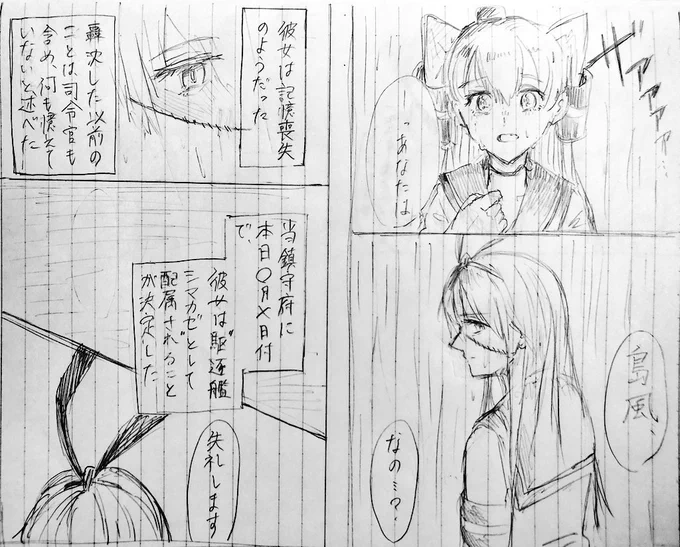 ザァァァァ…
ーっあなたは
島風
なの…?
彼女は記憶喪失
のようだった
轟沈した以前の
ことは司令官も
含め、何も憶えて
いないと述べた
当鎮守府に
本日〇月×日付
で、
彼女は駆逐艦
シマカゼとして
配属されること
が決定した
失礼します